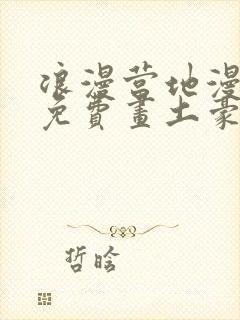 浪漫营地漫
免費畫土豪
哲晗